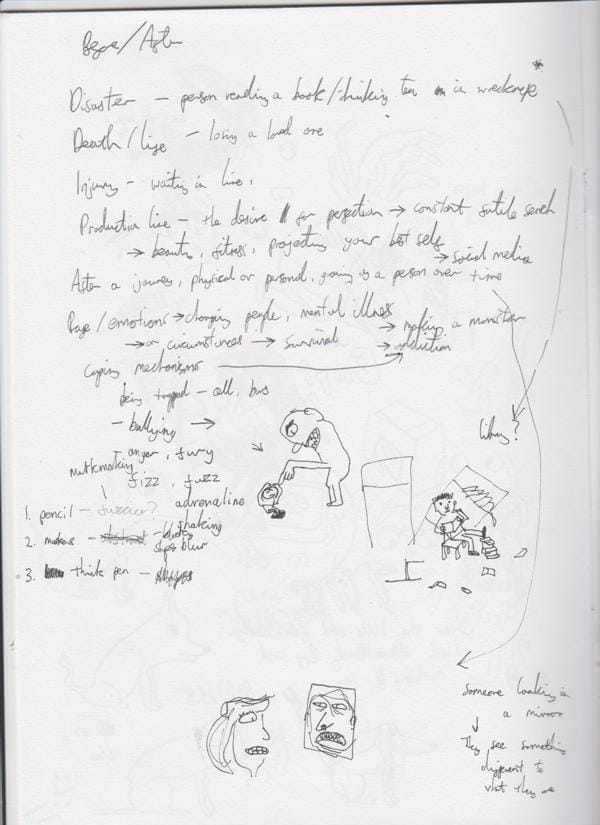 Before/After
Disaster – person reading a book/drinking tea in wreckage
Death/life – losing a loved one
Injury – waiting in line,
Production line – the desire for perfection → constant futile search
→ beauty, fitness, projecting your best self
→ social media
After a journey, physical or personal, going as a person over time
Rage/emotions → changing people, mental illness
→ making a monster
→ or circumstances → survival → addiction
Coping mechanisms
being trapped – cell, bus
– bullying →
anger, fury
markmaking
fizz, fuzz
1. pencil – fuzzier? adrenaline
shaking
2. makers – blur
3. thick pen –
library?
Someone looking in
a mirror
↓
They see something
different to
what they are